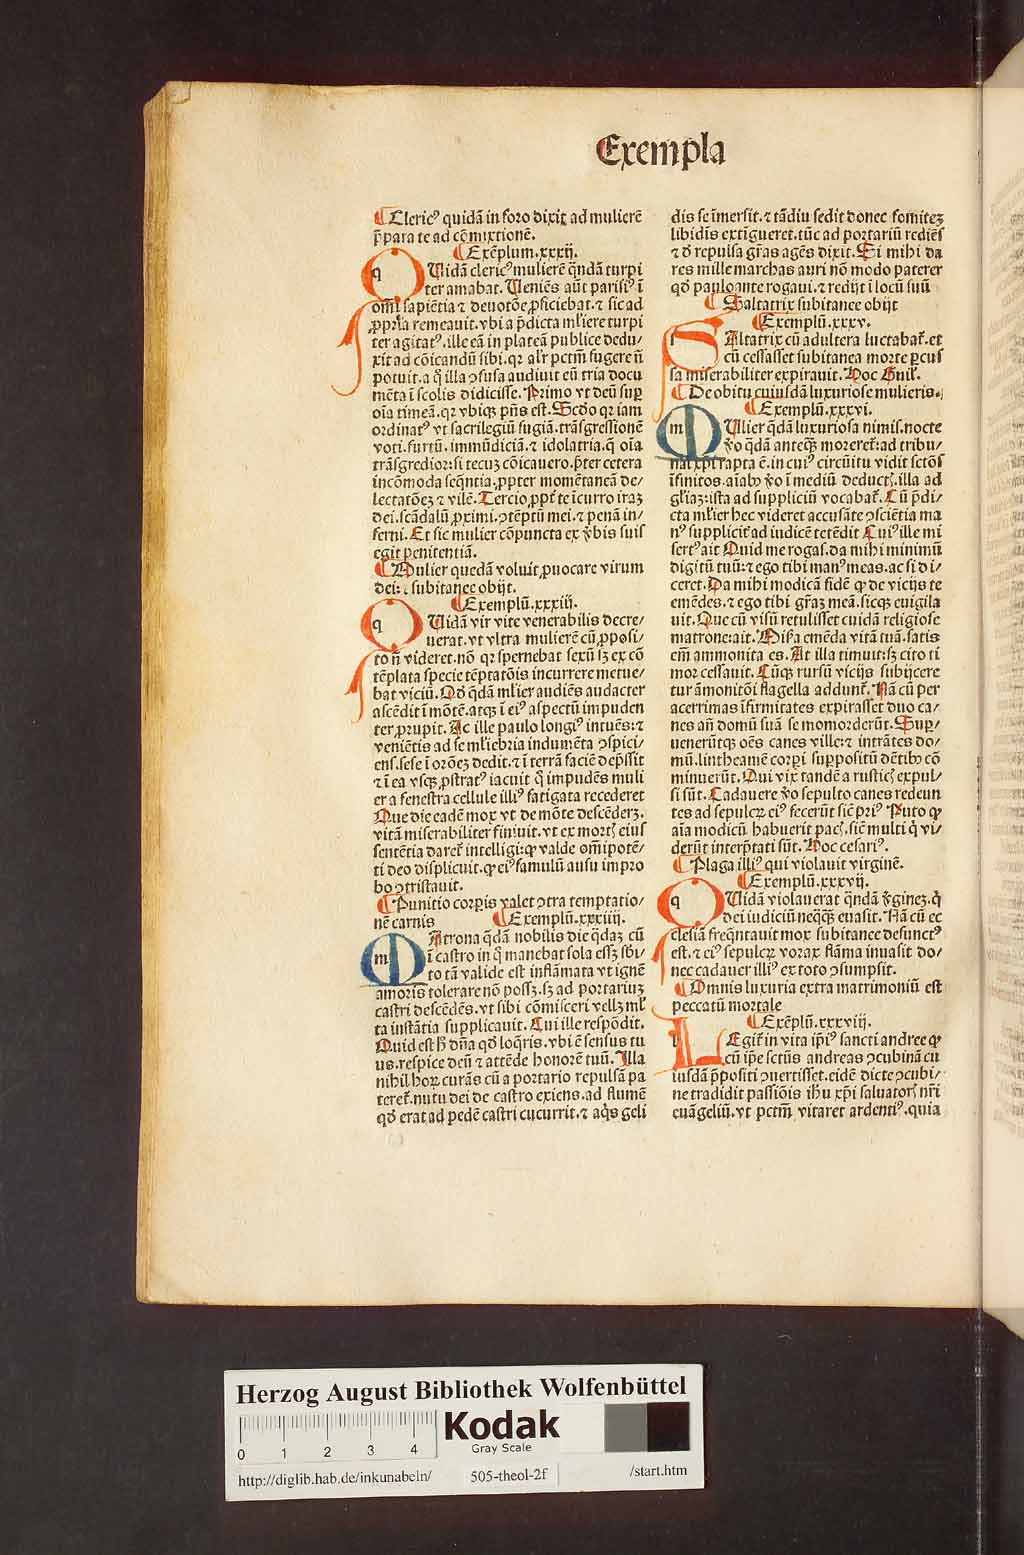 Exempla
¶ Cleric⁹ quidã in foro dixit ad mulierẽ
p̃para te ad cõmixtionẽ.
¶ Exẽplum .xxxij.
QUidã cleric⁹ mulierẽ q̃ndã turpi
ter amabat. Ueniẽs aũt parisi⁹ ĩ
om̃i sapiẽtia ⁊ deuotõe ꝓficiebat. ⁊ sic ad
ꝓpria remeauit. vbi a p̃dicta ml̃iere turpi
ter agitat⁹. ille eã in plateã publice dedu-
xit ad cõicandũ sibi. qr al'r pctm̃ fugere ñ
potuit. a q̃ illa ↄfusa audiuit eũ tria docu
mẽta ĩ scolis didicisse. Primo vt deũ sup̲
oĩa timeã. qr vbiqꝫ p̃ns est. Scd̃o qr iam
ordinat⁹ vt sacrilegiũ fugiã. trãsgressionẽ
voti. furtũ. immũdiciã. ⁊ idolatria. q̃ oĩa
trãsgredior: si tecuꝫ cõicauero. p̃ter cetera
incõmoda seq̃ntia. ꝓpter momẽtaneã de-
lectatõeꝫ ⁊ vilẽ. Tercio. ꝓpt̃ te icurro iraꝫ
dei. scãdalũ ꝓximi. ↄtẽptũ mei. ⁊ penã in-
ferni. Et sic mulier cõpuncta ex v̾bis suis
egit penitentiã.
¶ Mulier quedã voluit ꝓuocare virum
dei: ⁊ subitanee obijt.
¶ Exemplũ .xxxiij.
QUidã vir vite venerabilis decre-
uerat. vt vltra mulierẽ cũ ꝓposi-
to ñ videret. nõ qr spernebat sexũ sꝫ ex cõ
tẽplata specie tẽptatõis incurrere metue-
bat viciũ. Qd̃ q̃dã ml̃ier audiẽs audacter
ascẽdit ĩ mõtẽ. atqꝫ ĩ ei⁹ aspectũ impuden
ter ꝓrupit. Ac ille paulo longi⁹ intuẽs: ⁊
veniẽtis ad se ml̃iebria indumẽta ↄspici-
ens. sese ĩ orõeꝫ dedit. ⁊ ĩ terrã faciẽ dep̃ssit
⁊ ĩ ea vsqꝫ ꝓstrat⁹ iacuit q̃ impudẽs muli
er a fenestra cellule illi⁹ fatigata recederet
Que die eadẽ mox vt de mõte descẽderꝫ.
vitã miserabiliter finiuit. vt ex mortꝭ eius
sentẽtia daret̃ intelligi: ꝙ valde om̃ipotẽ-
ti deo displicuit. ꝙ ei⁹ famulũ ausu impro
bo ↄtristauit.
¶ Punitio corp̲is valet ↄtra temptatio-
nẽ carnis ¶ Exemplũ .xxxiiij.
MAtrona q̃dã nobilis die q̃daꝫ cũ
ĩ castro in q̃ manebat sola essꝫ sbi-
to tã valide est inflãmata vt ignẽ
amoris tolerare nõ possꝫ. sꝫ ad portariuꝫ
castri descẽdẽs. vt sibi cõmisceri vellꝫ ml̃
ta instãtia supplicauit. Cui ille respõdit.
Quid est h̃ dña qd̃ loq̃ris. vbi ẽ sensus tu
us. respice deũ ⁊ attẽde honorẽ tuũ. Illa
nihil hoꝝ curãs cũ a portario repulsã pa
teret̃. nutu dei de castro exiens. ad flumẽ
qd̃ erat ad pedẽ castri cucurrit. ⁊ aq̃s geli
dis se ĩmersit. ⁊ tãdiu sedit donec fomiteꝫ
libidĩs extĩgueret. tũc ad portariũ rediẽs
⁊ d̾ repulsa gr̃as agẽs dixit. Si mihi da
res mille marchas auri nõ modo paterer
qd̃ pauloante rogaui. ⁊ redijt ĩ locũ suũ
¶ Saltatrix subitanee obijt
¶ Exemplũ .xxxv.
SAltatrix cũ adultera luctabat̃. et
cũ cessasset subitanea morte p̲cus
sa miserabiliter expirauit. Hoc Guil̃.
¶ De obitu cuiusdã luxuriose mulieris.
¶ Exemplũ .xxxvi.
MUlier q̃dã luxuriosa nimis. nocte
v̾o q̃dã anteqꝫ moreret̃: ad tribu-
nal xp̃i rapta ẽ. in cui⁹ circũitu vidit sctõs
ĩfinitos. aĩab⁹ v̾o ĩ mediũ deductꝭ. illa ad
gl̃iaꝫ: ista ad suppliciũ vocabat̃. Cũ p̃di-
cta ml̃ier hec videret accusãte ↄsciẽtia ma
n⁹ suppliciť ad iudicẽ tetẽdit Cui⁹ ille mi
sert⁹ ait Quid me rogas. da mihi minimũ
digitũ tuũ: ⁊ ego tibi man⁹ meas. ac si di-
ceret. Da mihi modicã fidẽ ꝙ de vicijs te
emẽdes. ⁊ ego tibi gr̃aꝫ meã. sicqꝫ euigila
uit. Que cũ visũ retulisset cuidã religiose
matrone: ait. Misa emẽda vitã tuã. satis
em̃ ammonita es. At illa timuit: sꝫ cito ti
mor cessauit. Cũqꝫ rursũ vicijs subijcere
tur ãmonitõi flagella addunt̃. Nã cũ per
acerrimas ĩfirmitates expirasset duo ca-
nes añ domũ suã se momorderũt. Sup̲-
uenerũtqꝫ oẽs canes ville: ⁊ intrãtes do-
mũ. lintheamẽ corp̲i suppositũ dẽtib⁹ cõ
minuerũt. Qui vix tandẽ a rusticꝭ expul-
si sũt. Cadauere v̾o sepulto canes redeun
tes ad sepulcꝝ ei⁹ fecerũt sic̃ pri⁹ Puto ꝙ
aĩa modicũ habuerit pacꝭ. sic̃ multi q̃ vi-
derũt interp̃tati sũt. Hoc cesari⁹.
¶ Plaga illi⁹ qui violauit virginẽ.
¶ Exemplũ .xxxvij.
QUidã violauerat q̃ndã v̾gineꝫ. q̃
dei iudiciũ neqꝗꝫ euasit. Nã cũ ec
clesiã freq̃ntauit mox subitanee defunct⁹
est. ⁊ ei⁹ sepulcꝝ vorax flãma inuasit do-
nec cadauer illi⁹ ex toto ↄsumpsit.
¶ Omnis luxuria extra matrimoniũ est
peccatũ mortale
¶ Exẽplũ .xxxviij.
LEgit̃ in vita ip̃i⁹ sancti andree ꝙ
cũ ip̃e sctũs andreas ↄcubinã cu
iusdã p̃positi ↄuertisset. eidẽ dicte ↄcubi-
ne tradidit passiõis ih̃u xp̃i saluatorꝭ nr̃i
euãgeliũ. vt pctm̃ vitaret ardenti⁹. quia
Herzog August Bibliothek Wolfenbüttel
0 1 2 3 4
Kodak
Gray Scale
http://diglib.hab.de/inkunabeln/ 505-theol-2f /start.htm